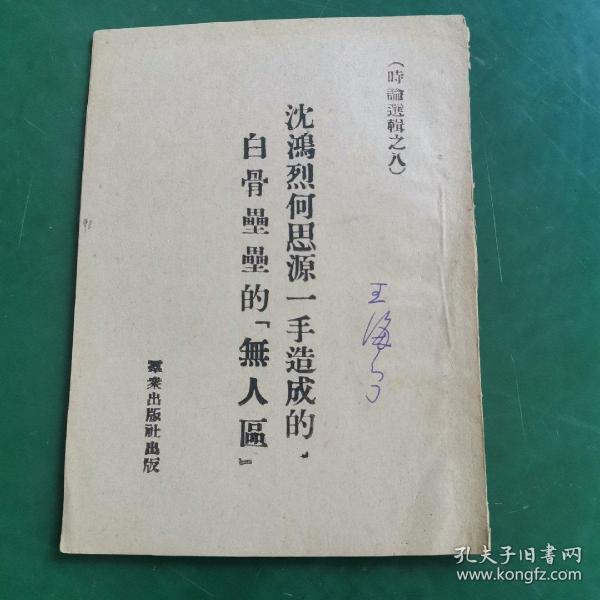 （時論選輯之八）
沈鴻烈何思源一手造成的，
白骨壘壘的「無人區」
羣衆出版社出版
王海
孔夫子旧书网
www.kongfz.com